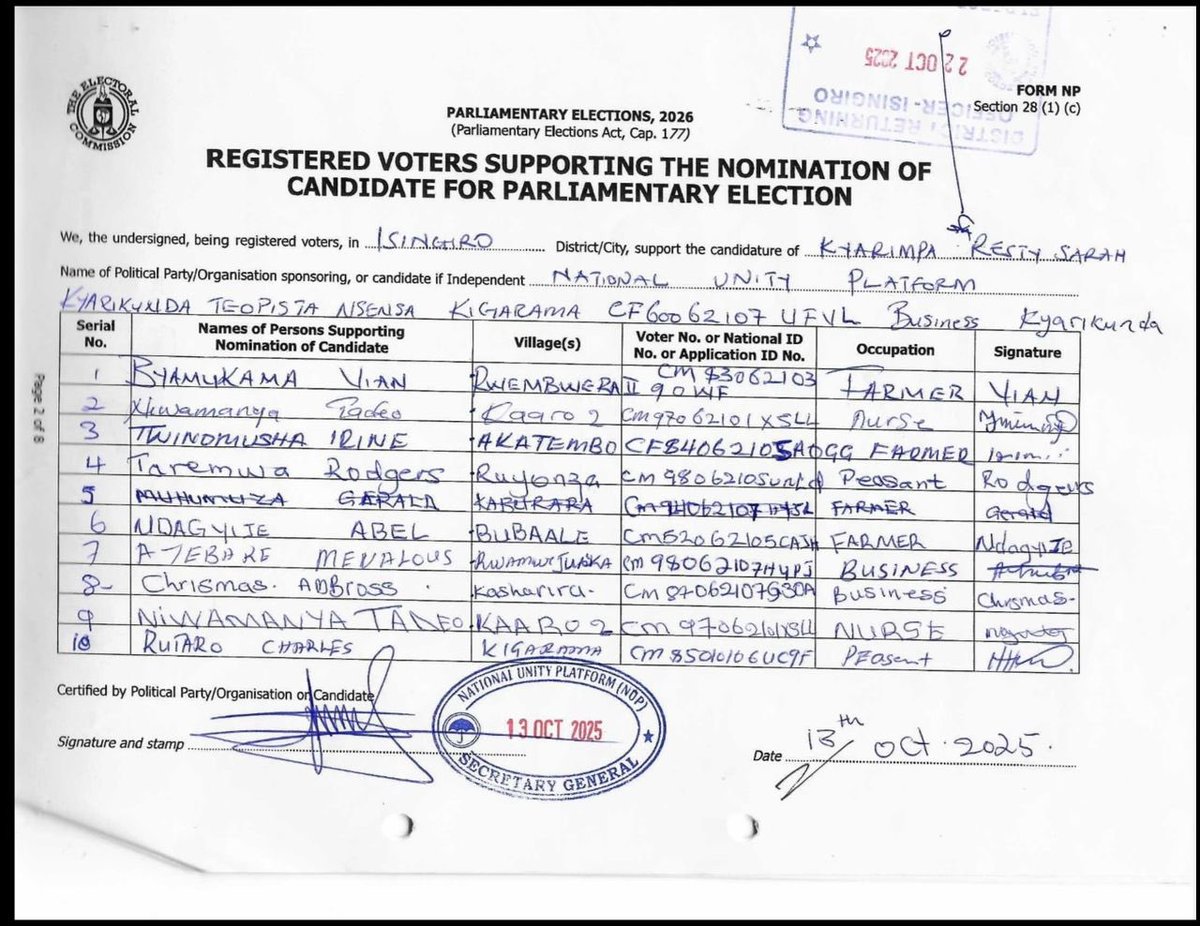 THE ELECTORAL COMMISSION
22 OCT 2025
DISTRICT RETURNING
OFFICER-ISINGIRO
FORM NP
Section 28 (1) (c)
PARLIAMENTARY ELECTIONS, 2026
(Parliamentary Elections Act, Cap. 177)
REGISTERED VOTERS SUPPORTING THE NOMINATION OF
CANDIDATE FOR PARLIAMENTARY ELECTION
We, the undersigned, being registered voters, in ISINGIRO District/City, support the candidature of KYARIMPA RESTY SARAH
Name of Political Party/Organisation sponsoring, or candidate if Independent NATIONAL UNITY PLATFORM
KYARIKUNDA TEOPISTA NSENSA KIGARAMA CF60062107UFVL Business Kyarikunda
Serial No. Names of Persons Supporting Nomination of Candidate Village(s) Voter No. or National ID No. or Application ID No. Occupation Signature
1 BYAMUKAMA VIAN RWEMBWERA II CM83062103 90WF FARMER VIAN
2 Tadeo Kaaro 2 CM97062101XSLL Nurse
3 TWINOMUSHA IRINE AKATEMBO FARMER
4 Taremwa Rodgers Ruyonza Peasant Rodgers
5 MUHUMUZA GERALD KABURARA FARMER Gerald
6 NDAGYIJE ABEL BUBAALE FARMER NdagyIJE
7 ATEBARE MENALOUS BUSINESS
8 Chrismas. AMBross Kasharira. Business Chrismas.
9 NIWAMANYA TADEO KAARO 2 NURSE
10 RUTARO CHARLES KIGARAMA PEasent
Page 2 of 8
Certified by Political Party/Organisation or Candidate
Signature and stamp
NATIONAL UNITY PLATFORM (NUP)
13 OCT 2025
SECRETARY GENERAL
Date 13th OCT. 2025.